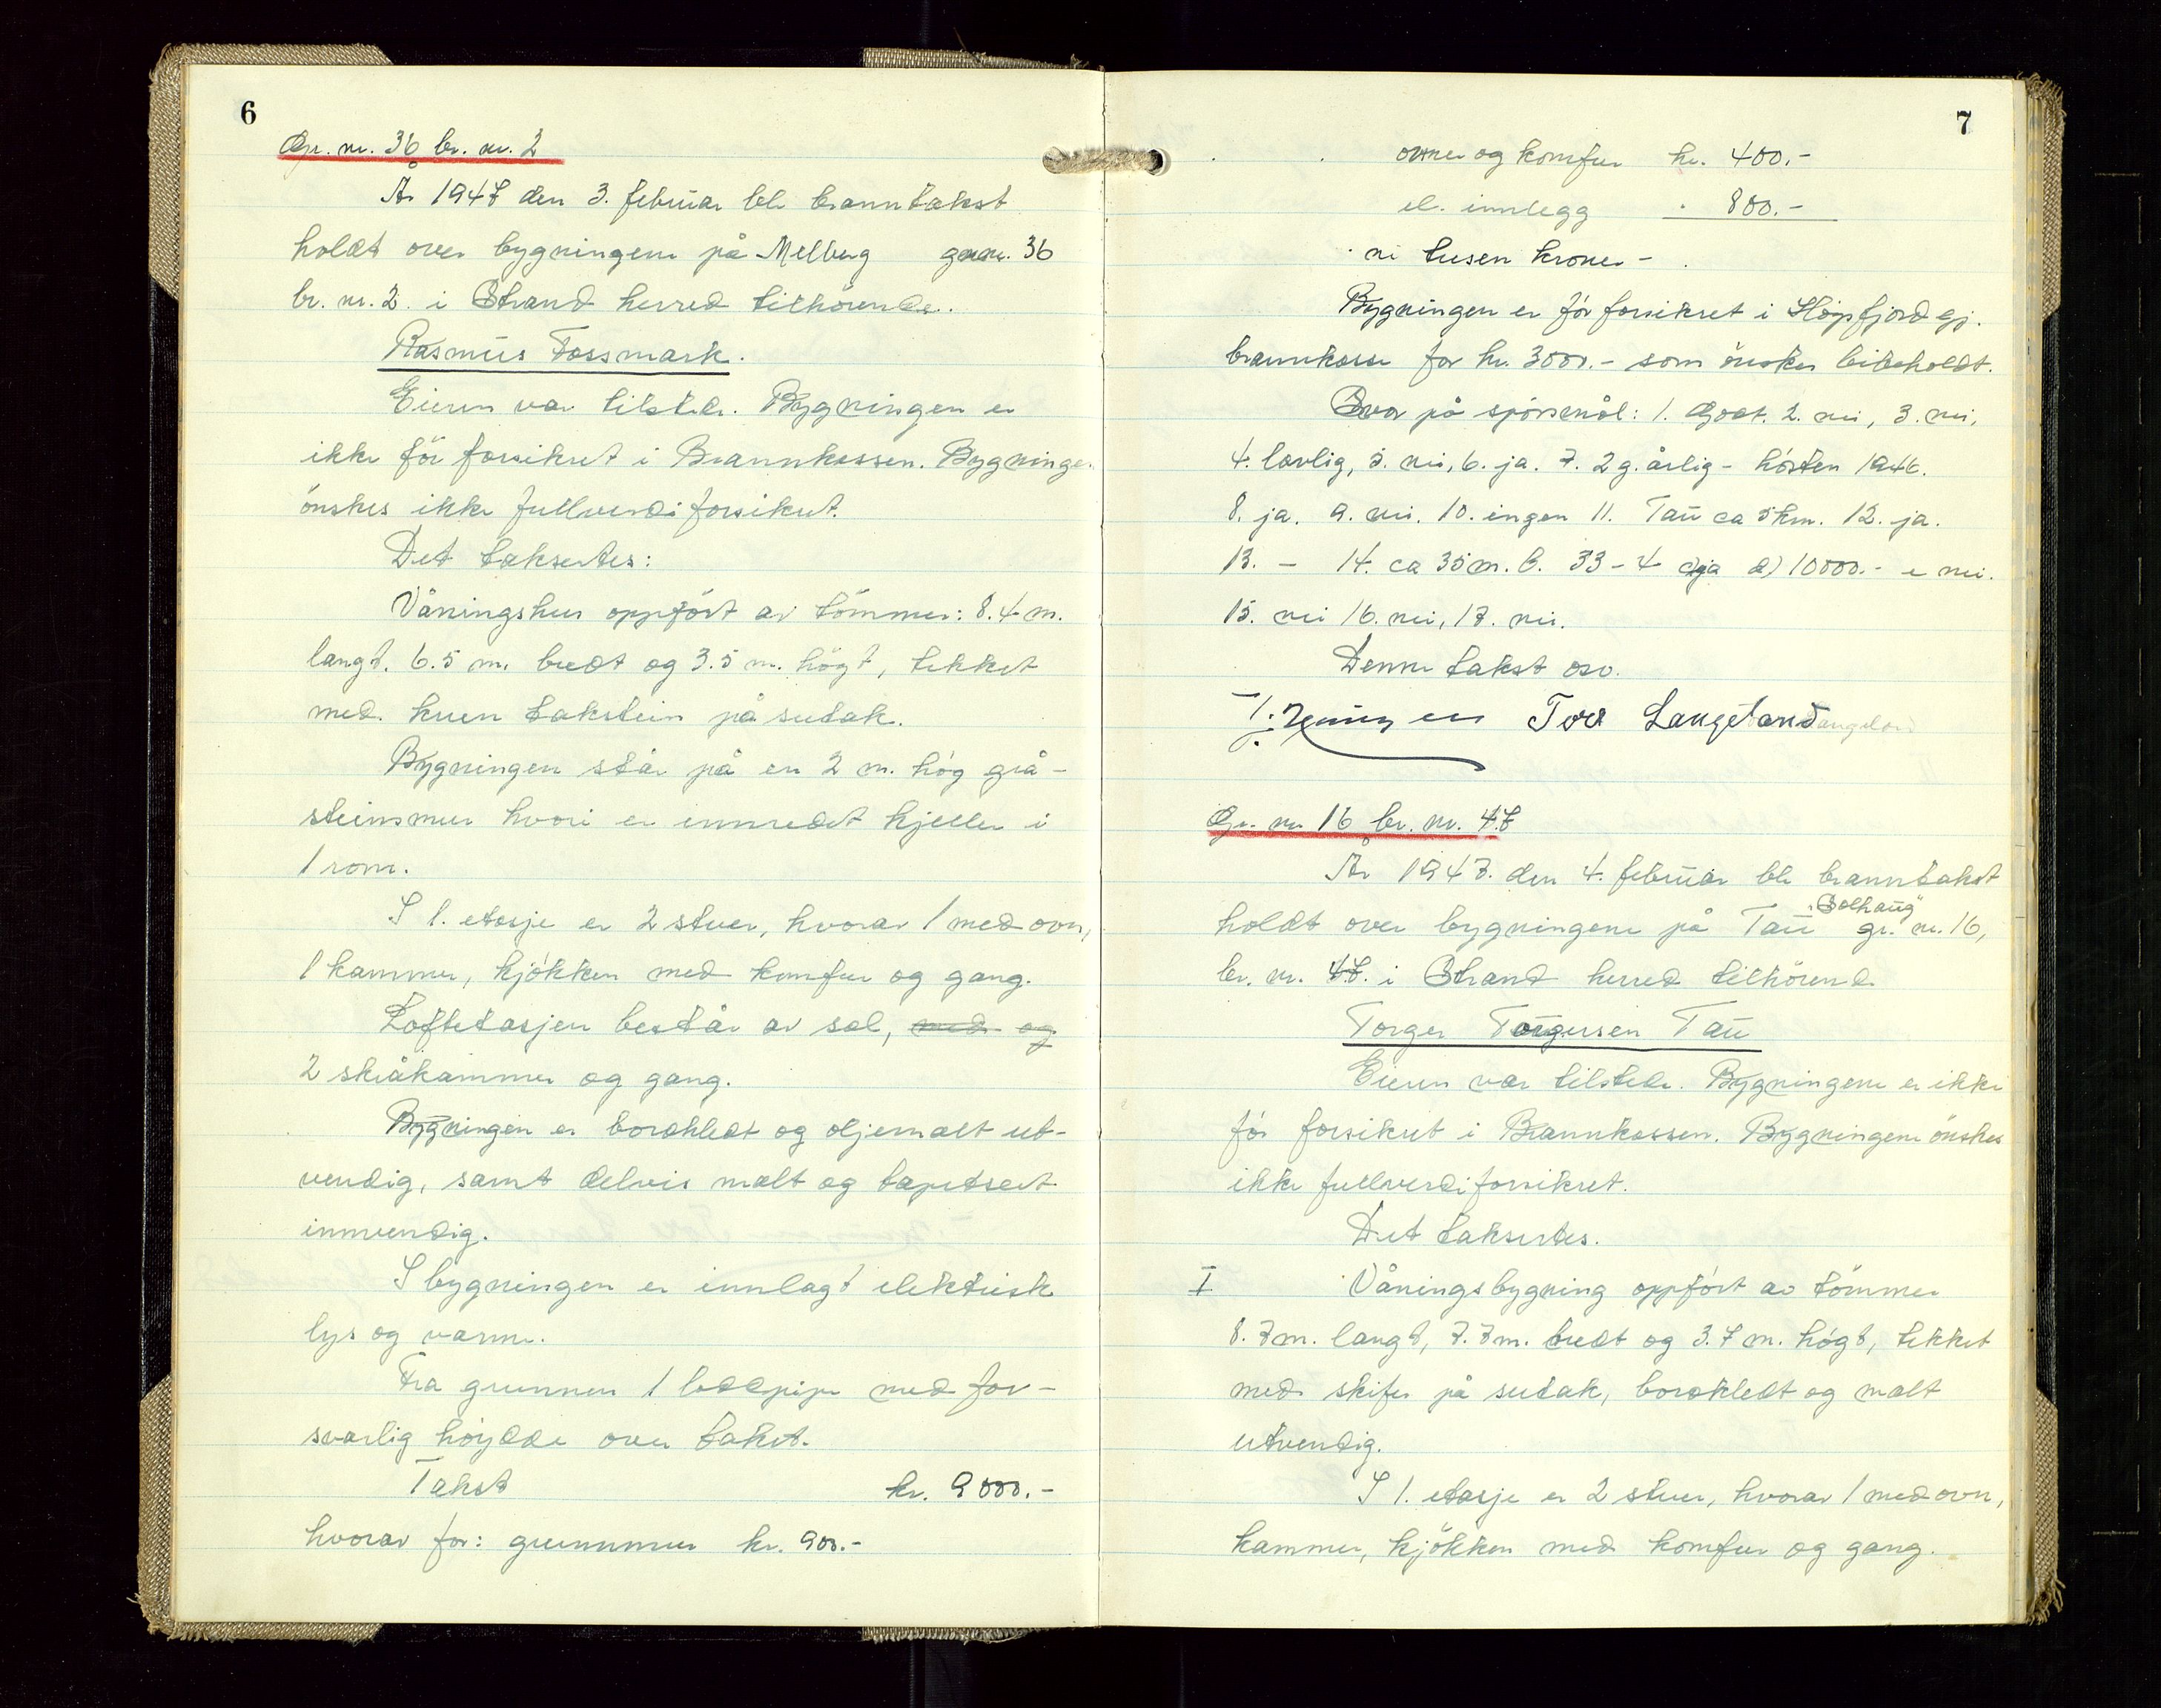 6
Gr. nr. 36 br. nr. 2
År 1947 den 3. februar ble branntakst
holdt over bygningene på Melberg gr.nr. 36
br. nr. 2. i Strand herred tilhörende.
Rasmus Fossmark.
Eieren var tilstede. Bygningen er
ikke för forsikret i Brannkassen. Bygningen
önskes ikke fullverdiforsikret.
Det taksertes:
Våningshus oppfört av tömmer: 8.4 m.
langt. 6.5 m. bredt og 3.5 m. högt, tekket
med krum takstein på sutak.
Bygningen står på en 2 m. hög grå-
steinsmur hvori er innredet kjeller i
1 rom.
I 1. etasje er 2 stuer, hvorav 1 med ovn,
1 kammer, kjökken med komfur og gang.
Loftetasjen består av sal, med og
2 skråkammer og gang.
Bygningen er bordkledt og oljemalt ut-
vendig, samt delvis malt og tapetsert
innvendig.
I bygningen er innlagt elektrisk
lys og varme.
Fra grunnen 1 loddpipe med for-
svarlig höydde over taket.
Takst kr. 9000.-
hvorav for: grunnmur kr. 900.-
7
ovner og komfur kr. 400.-
el. innlegg " 800.-
ni tusen kroner -
Bygningen er för forsikret i Högsfjord gj.
brannkasse for kr. 3000.- som önskes bibeholdt.
Svar på spörsmål: 1. Godt. 2. nei, 3. nei,
4. lovlig, 5. nei, 6. ja. 7. 2 g. årlig - hösten 1946.
8. ja. 9. nei. 10. ingen 11. Tau ca 5 km. 12. ja.
13. - 14. ca 35 m. b. 33-4 c) ja d) 10000.- e nei.
15. nei 16. nei, 17. nei.
Denne takst osv.
Tore Langeland
Gr. nr 16 br. nr. 47
År 1947. den 4. februar ble branntakst
"Solhaug"
holdt over bygningene på Tau gr. nr. 16,
br. nr. 47. i Strand herred tilhörende
Torger Torgersen Tau
Eieren var tilstede. Bygningene er ikke
för forsikret i Brannkassen. Bygningene önskes
ikke fullverdiforsikret.
Det taksertes.
I Våningsbygning oppfört av tömmer
8.7 m. langt, 7.7 m. bredt og 3.7 m. högt, tekket
med skifer på sutak, bordkledt og malt
utvendig.
I 1. etasje er 2 stuer, hvorav 1 med ovn,
kammer, kjökken med komfur og gang.